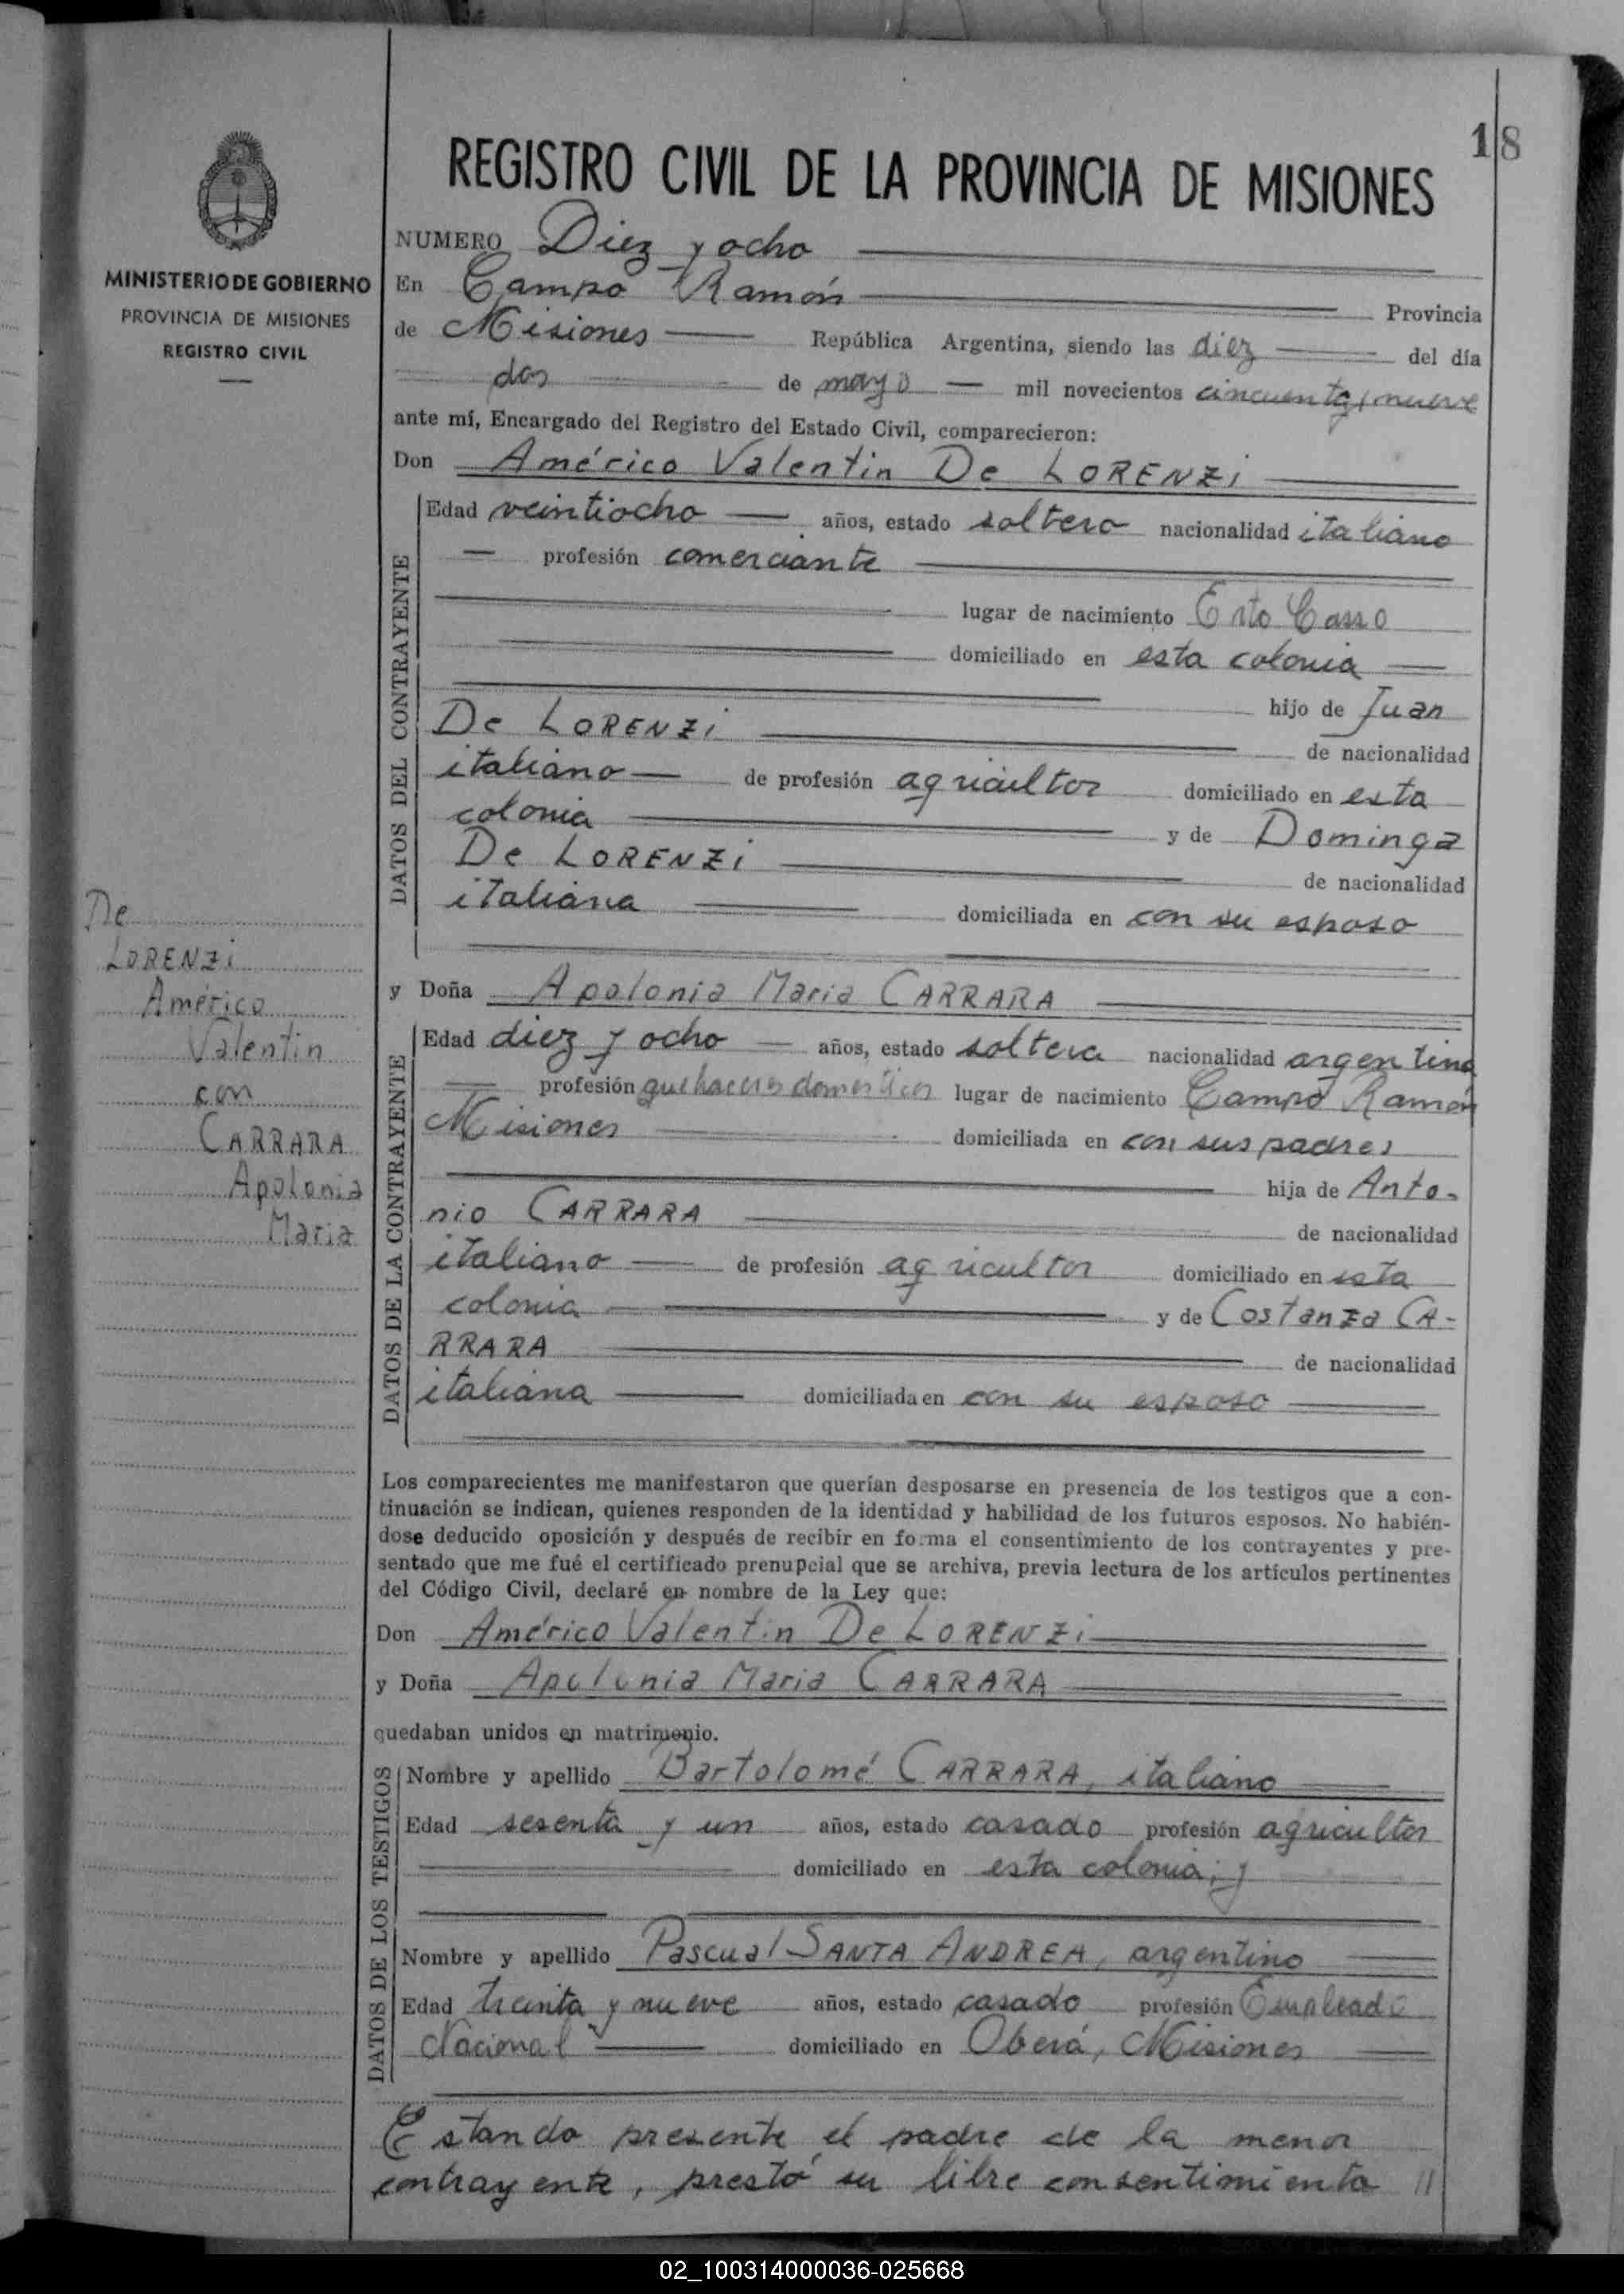 18
REGISTRO CIVIL DE LA PROVINCIA DE MISIONES
MINISTERIO DE GOBIERNO
PROVINCIA DE MISIONES
REGISTRO CIVIL
NUMERO Diez y ocho
En Campo Ramón Provincia
de Misiones República Argentina, siendo las diez del día
dos de mayo mil novecientos cincuenta y nueve
ante mí, Encargado del Registro del Estado Civil, comparecieron:
Don Américo Valentin De LORENZI
DATOS DEL CONTRAYENTE
Edad veintiocho años, estado soltero nacionalidad italiano
profesión comerciante
lugar de nacimiento Casso
domiciliado en esta colonia
hijo de Juan
De LORENZI de nacionalidad
italiano de profesión agricultor domiciliado en esta
colonia y de Dominga
De LORENZI de nacionalidad
italiana domiciliada en con su esposo
De
LORENZI
Américo
Valentin
con
CARRARA
Apolonia
Maria
y Doña Apolonia Maria CARRARA
DATOS DE LA CONTRAYENTE
Edad diez y ocho años, estado soltera nacionalidad argentina
profesión quehaceres domesticos lugar de nacimiento Campo Ramón
Misiones domiciliada en con sus padres
hija de Anto-
nio CARRARA de nacionalidad
italiano de profesión agricultor domiciliado en esta
colonia y de Costanza CA-
RRARA de nacionalidad
italiana domiciliada en con su esposo
Los comparecientes me manifestaron que querían desposarse en presencia de los testigos que a con-
tinuación se indican, quienes responden de la identidad y habilidad de los futuros esposos. No habién-
dose deducido oposición y después de recibir en forma el consentimiento de los contrayentes y pre-
sentado que me fué el certificado prenupcial que se archiva, previa lectura de los artículos pertinentes
del Código Civil, declaré en nombre de la Ley que:
Don Américo Valentin De LORENZI
y Doña Apolonia Maria CARRARA
quedaban unidos en matrimonio.
DATOS DE LOS TESTIGOS
Nombre y apellido Bartolomé CARRARA, italiano
Edad sesenta y un años, estado casado profesión agricultor
domiciliado en esta colonia; y
Nombre y apellido Pascual SANTA ANDREA, argentino
Edad treinta y nueve años, estado casado profesión Empleado
Nacional domiciliado en Oberá, Misiones
Estando presente el padre de la menor
contrayente, prestó su libre consentimiento //
02_100314000036-025668